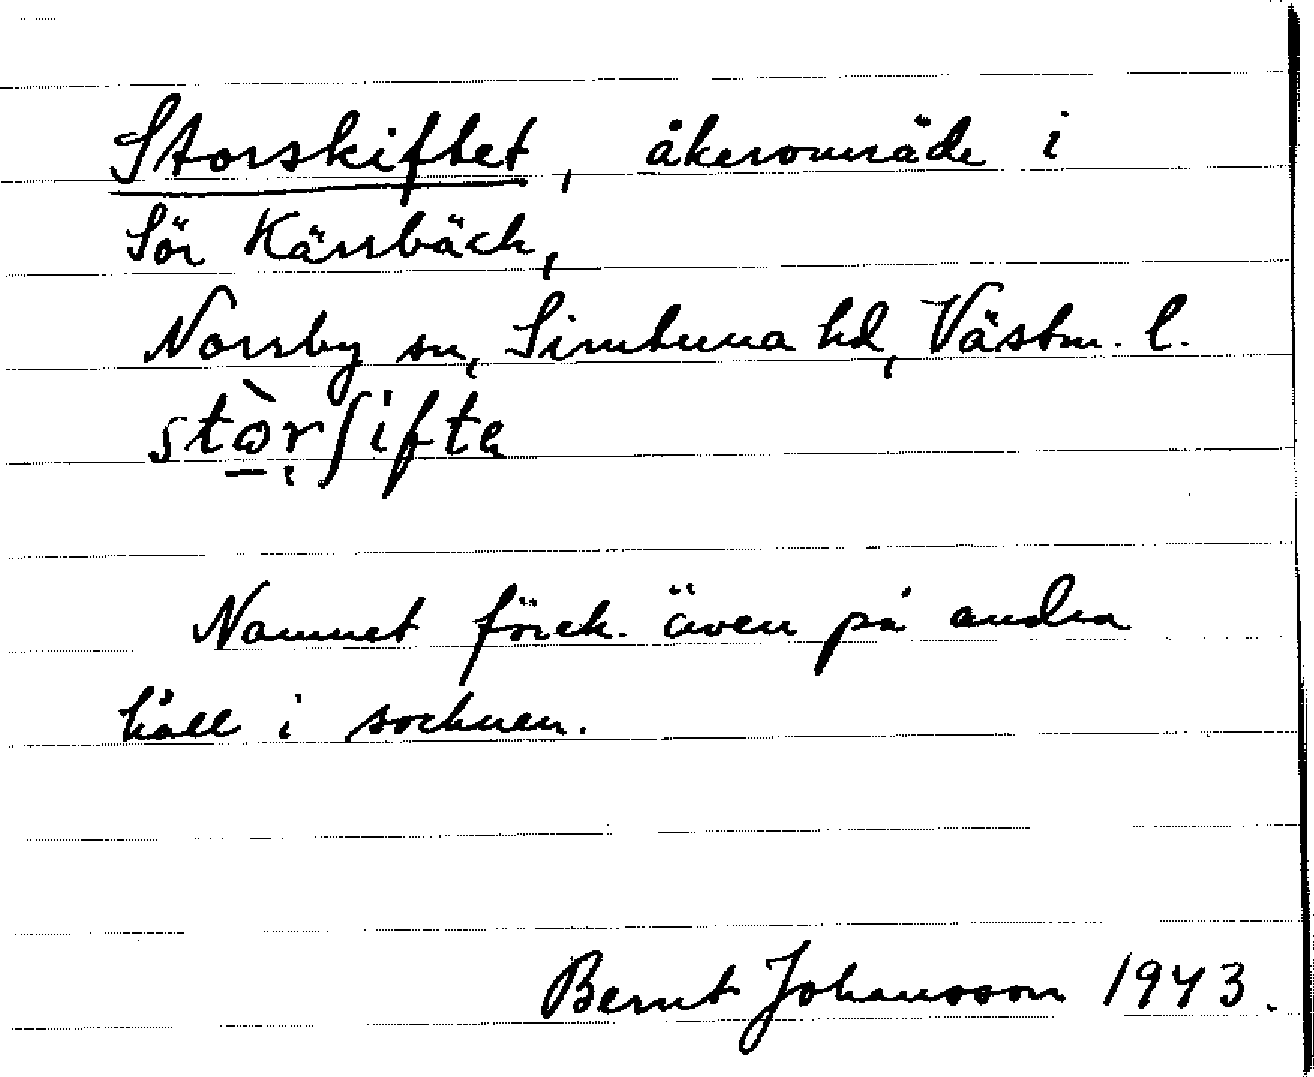 Storskiftet, åkerområde i
Sör Kärrbäck,
Norrby sn, Simtuna hd, Västm. l.
stòrʃifta
Namnet förek. även på andra
håll i socknen.
Bernt Johansson 1943.